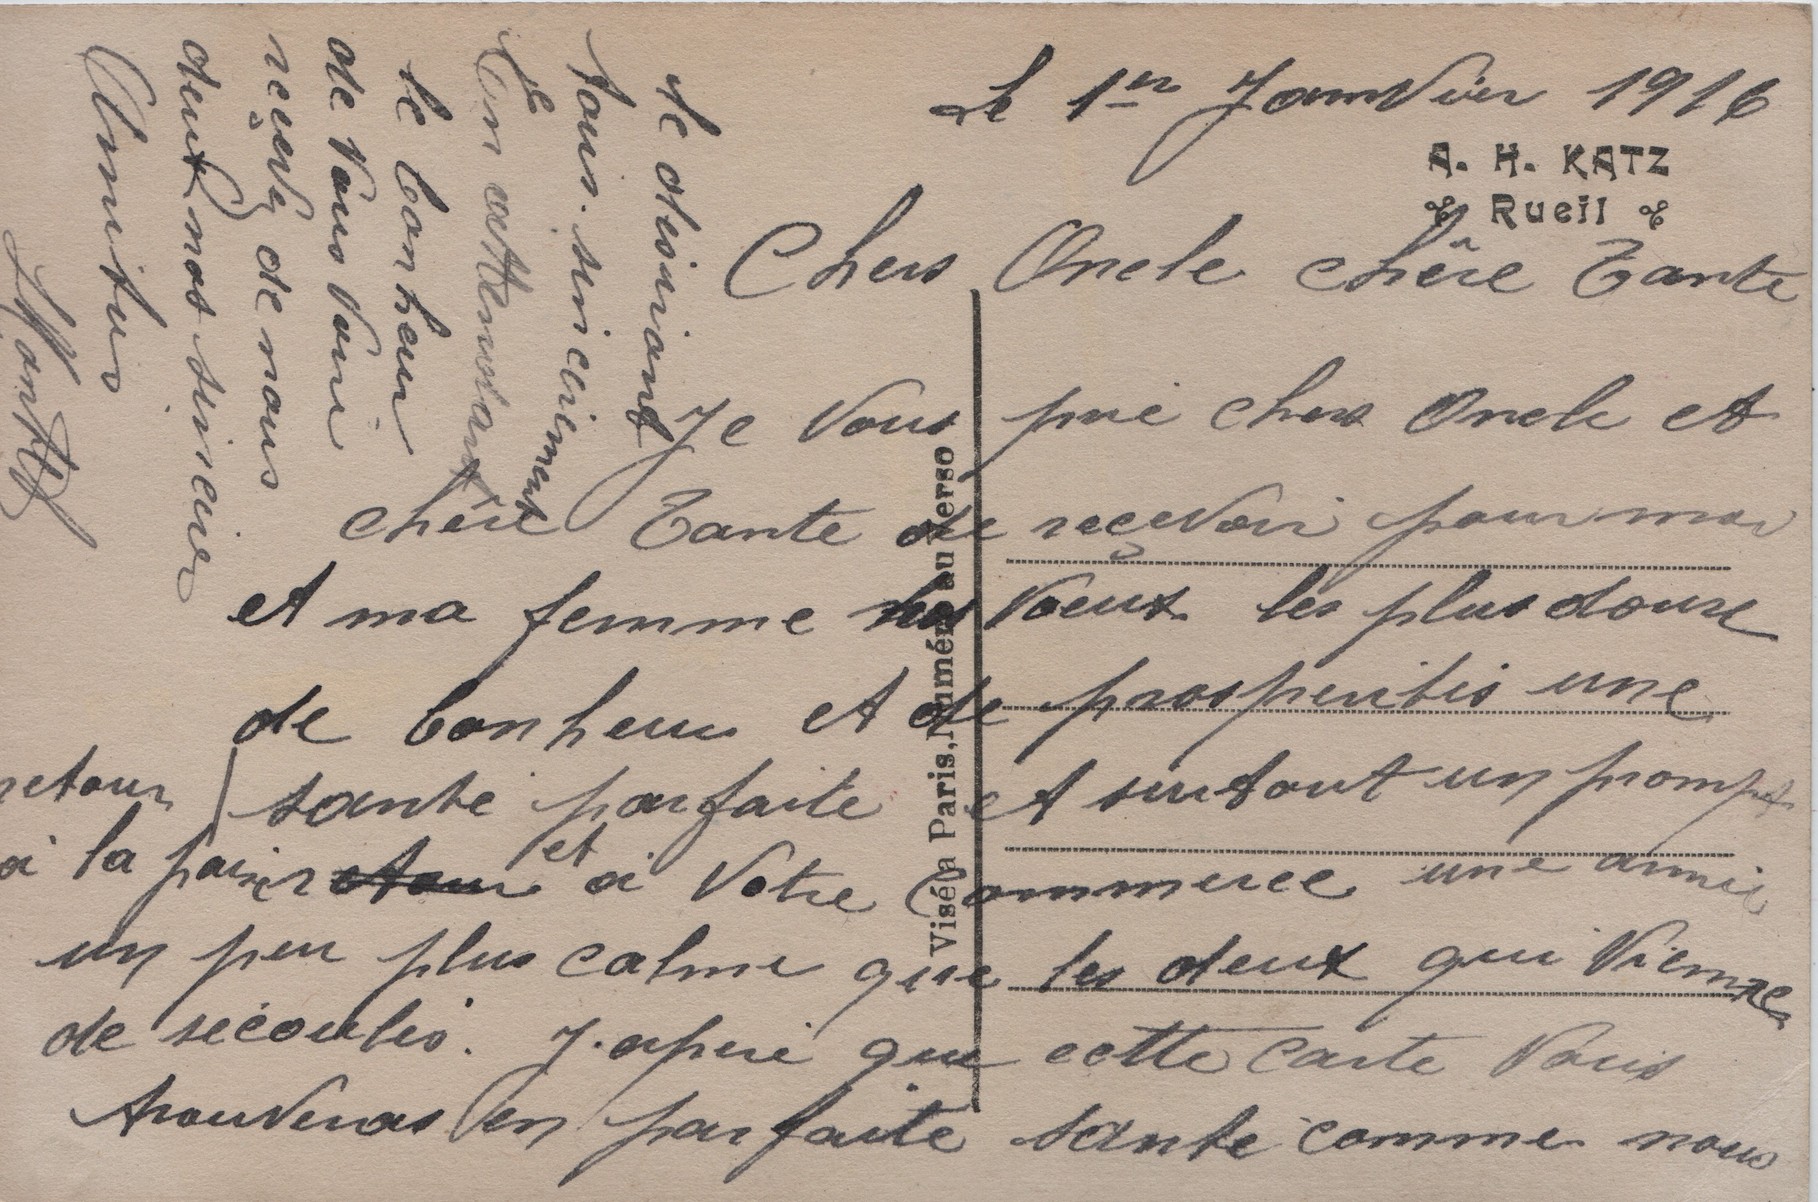 Le 1er Janvier 1916
A. H. KATZ
Rueil
Chers Oncle chère Tante
Je vous prie chers Oncle et
chère Tante de reçevoir pour moi
et ma femme nos voeux les plus
de bonheur et de prosperités une
sante parfaite et surtout un prompt
retour
à la paix et à Votre Commerce une année
un peu plus calme que les deux qui vienne
de sécoulés. J'espère que cette carte vous
trouveras en parfaite sante comme nous
le désirions
tous sincèrement
En attendant
le bonheur
de vous voir
reçevez de nous
deux nos sincère
Amitiés
Visé à Paris, Numéro au Verso